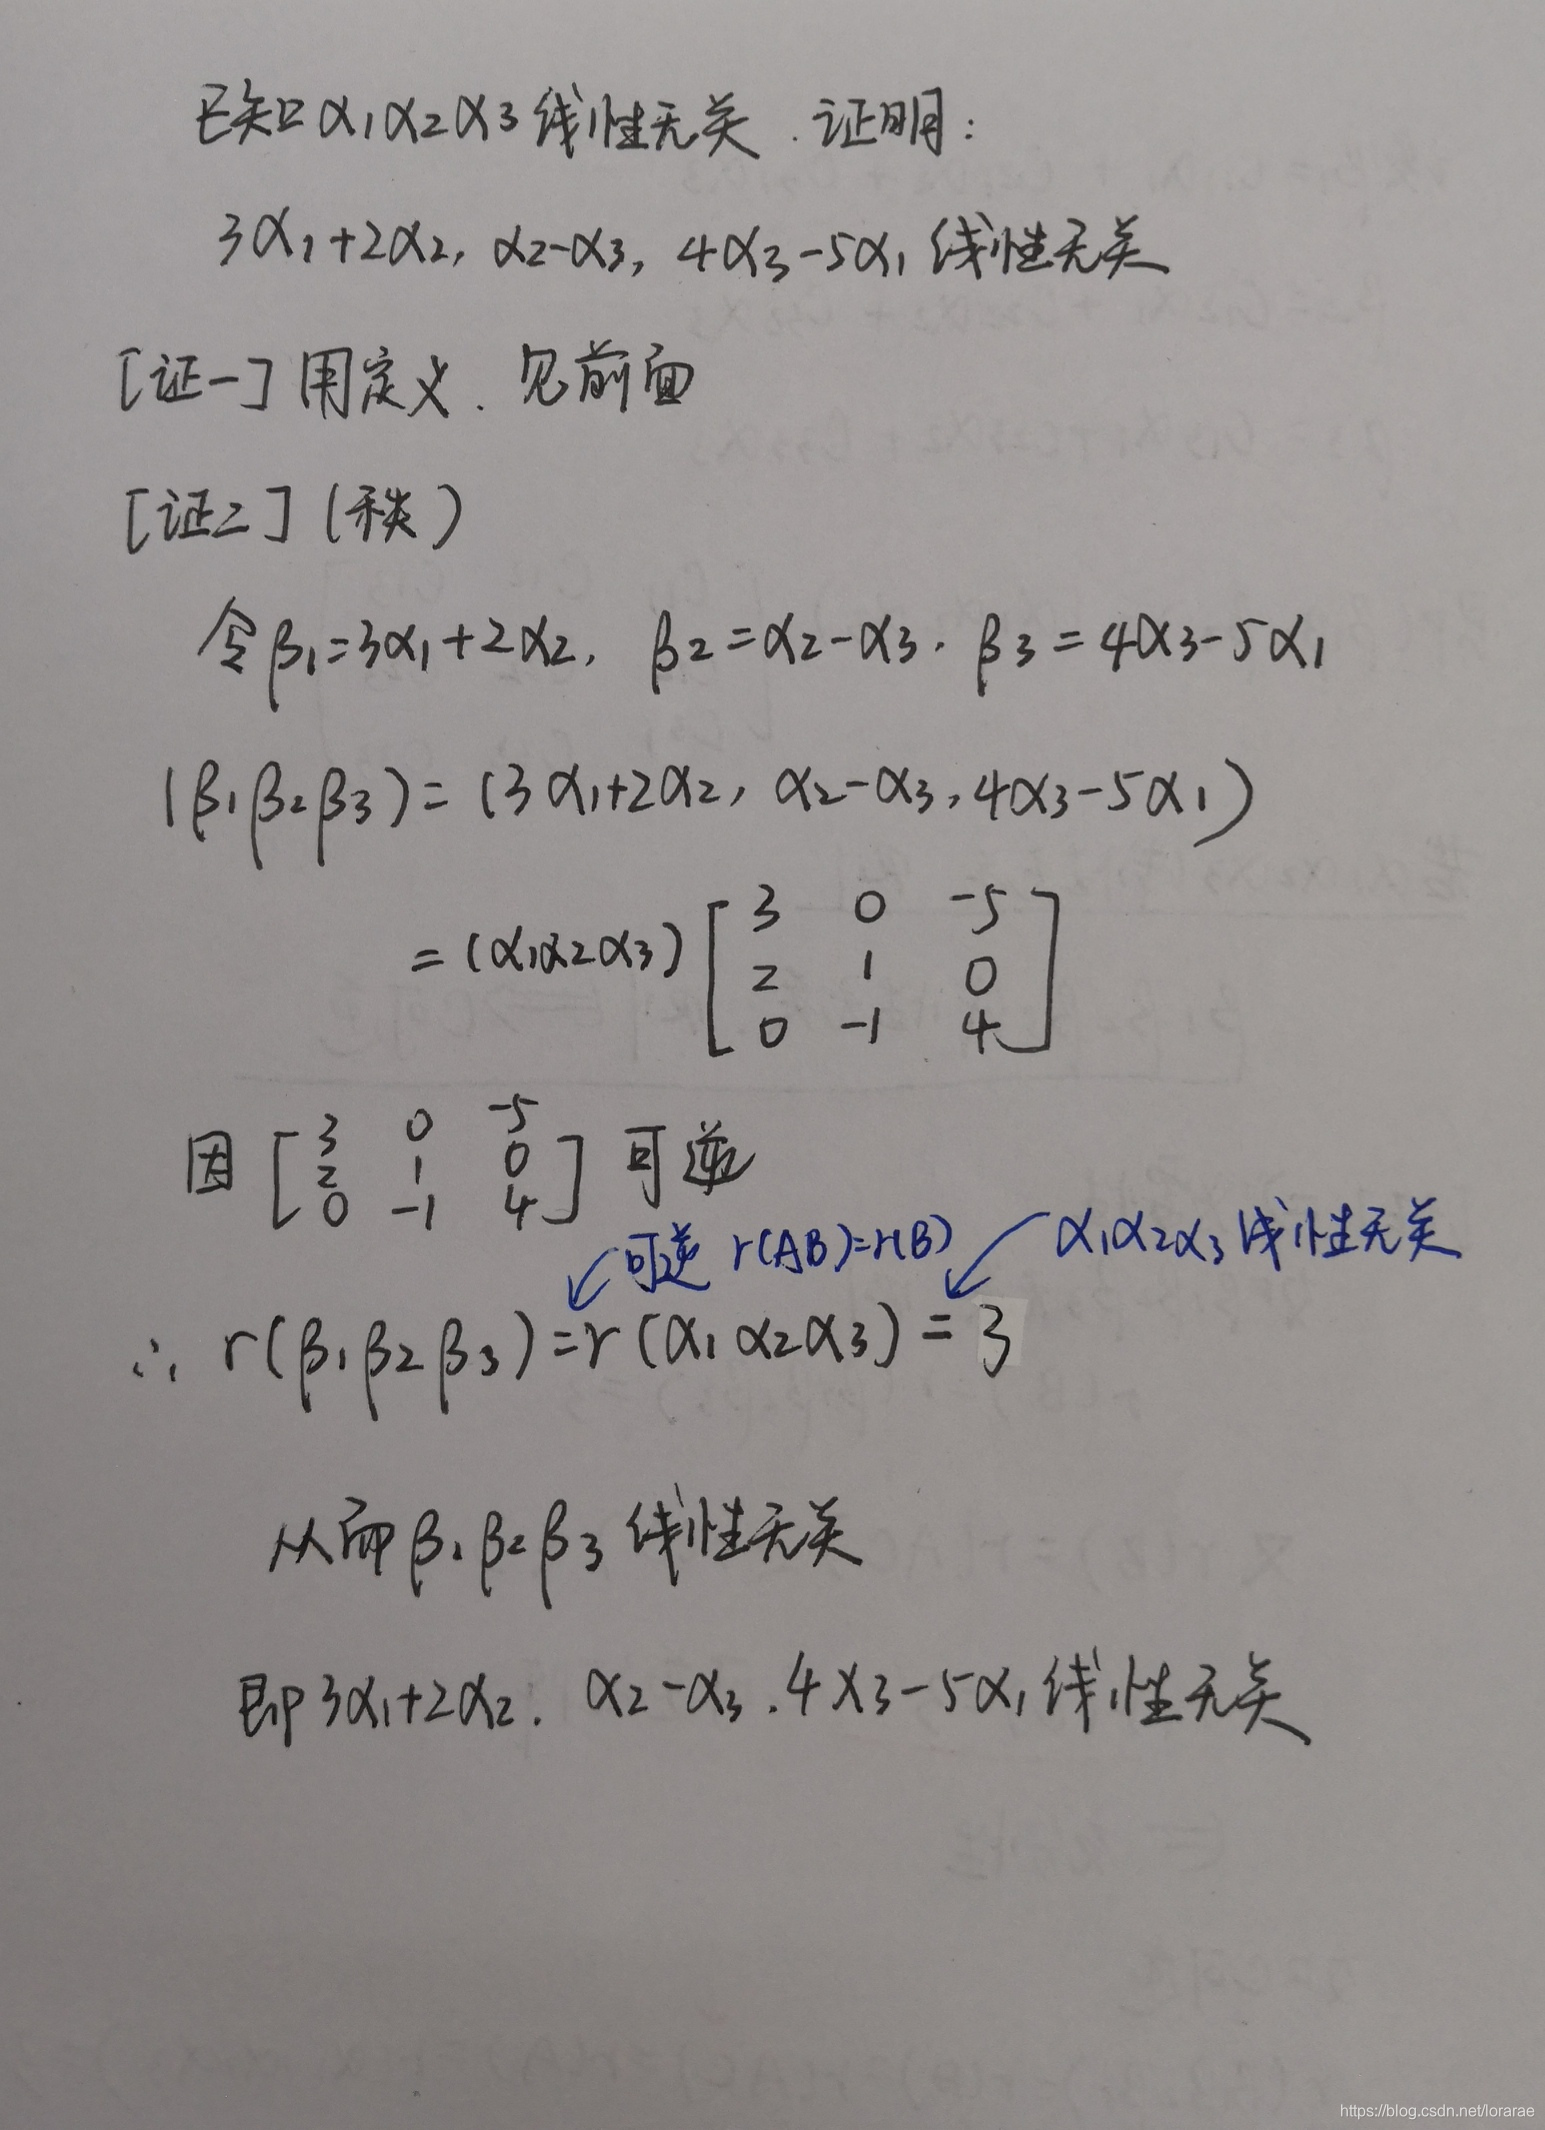 已知α1α2α3线性无关.证明:
3α1+2α2, α2-α3, 4α3-5α1 线性无关
[证一]用定义.见前面
[证二](秩)
令β1=3α1+2α2, β2=α2-α3. β3=4α3-5α1
(β1β2β3)=(3α1+2α2, α2-α3,4α3-5α1)
=(α1α2α3)[3 0 -5
2 1 0
0 -1 4]
因[3 0 -5
2 1 0
0 -1 4]可逆
可逆 r(AB)=r(B) α1α2α3线性无关
∴ r(β1β2β3)=r(α1α2α3)=3
从而β1β2β3线性无关
即3α1+2α2. α2-α3.4α3-5α1线性无关
https://blog.csdn.net/lorarae